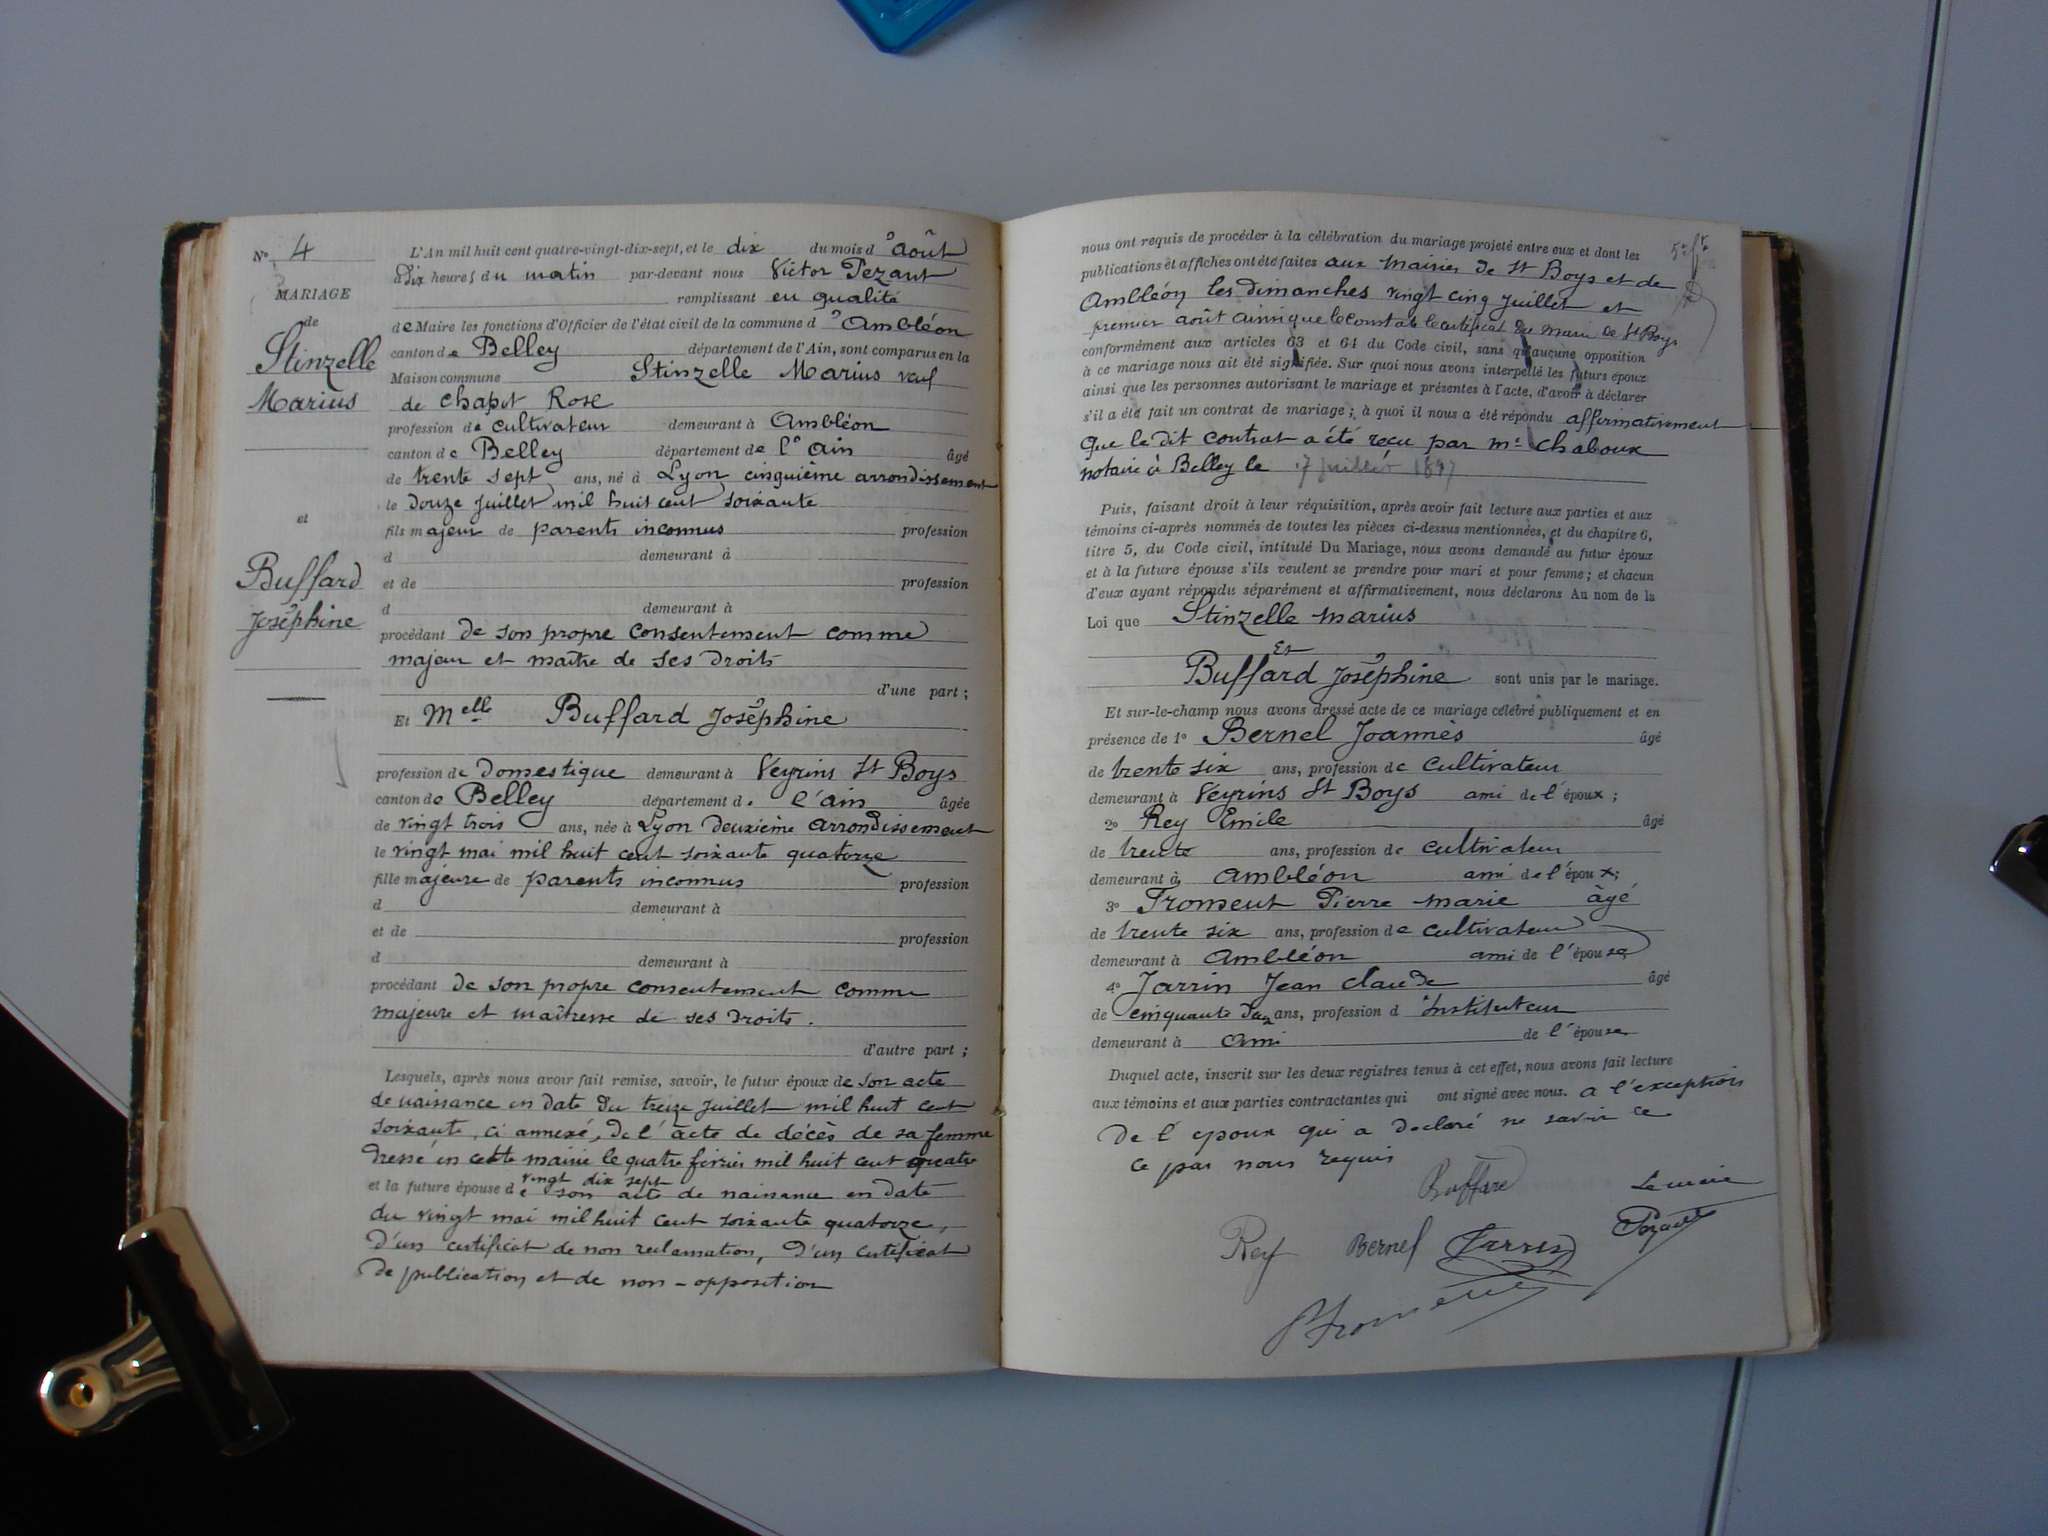 N° 4
MARIAGE
de
Stinzelle
Marius
et
Buffard
Joséphine
L'An mil huit cent quatre-vingt-dix-sept, et le dix du mois d'août
dix heures du matin par-devant nous Victor Pezant
remplissant en qualité
de Maire les fonctions d'Officier de l'état civil de la commune d'Ambléon
canton de Belley département de l'Ain, sont comparus en la
Maison commune Stinzelle Marius veuf
de Chapot Rose
profession de cultivateur demeurant à Ambléon
canton de Belley département de l'ain âgé
de trente sept ans, né à Lyon cinquième arrondissement
le Douze juillet mil huit cent soixante
fils majeur de parents inconnus profession
d demeurant à
et de profession
d demeurant à
procédant de son propre consentement comme
majeur et maître de ses droits
d'une part ;
Et Melle Buffard Joséphine
profession de Domestique demeurant à Veyrins St Boys
canton de Belley département d. l'ain âgée
de vingt trois ans, née à Lyon Deuxième arrondissement
le vingt mai mil huit cent soixante quatorze
fille majeure de parents inconnus profession
d demeurant à
et de profession
d demeurant à
procédant de son propre consentement comme
majeure et maîtresse de ses droits.
d'autre part ;
Lesquels, après nous avoir fait remise, savoir, le futur époux de son acte
de naissance en date du treize juillet mil huit cent
soixante, ci annexé, de l'acte de décès de sa femme
dressé en cette mairie le quatre février mil huit cent quatre
vingt dix sept
et la future épouse de son acte de naissance en date
du vingt mai mil huit cent soixante quatorze,
d'un certificat de non reclamation, d'un certificat
de publication et de non-opposition
nous ont requis de procéder à la célébration du mariage projeté entre eux et dont les
publications et affiches ont été faites aux mairies de St Boys et de
Ambléon les dimanches vingt cinq juillet et
premier août ainsi que le constate le certificat du maire de St Boys
conformément aux articles 63 et 64 du Code civil, sans qu'aucune opposition
à ce mariage nous ait été signifiée. Sur quoi nous avons interpellé les futurs époux
ainsi que les personnes autorisant le mariage et présentes à l'acte, d'avoir à déclarer
s'il a été fait un contrat de mariage ; à quoi il nous a été répondu affirmativement
que le dit contrat a été reçu par me Chaboux
notaire à Belley le 17 juillet 1897
Puis, faisant droit à leur réquisition, après avoir fait lecture aux parties et aux
témoins ci-après nommés de toutes les pièces ci-dessus mentionnées, et du chapitre 6,
titre 5, du Code civil, intitulé Du Mariage, nous avons demandé au futur époux
et à la future épouse s'ils veulent se prendre pour mari et pour femme ; et chacun
d'eux ayant répondu séparément et affirmativement, nous déclarons Au nom de la
Loi que Stinzelle Marius
Et
Buffard Joséphine sont unis par le mariage.
Et sur-le-champ nous avons dressé acte de ce mariage célébré publiquement et en
présence de 1° Bernel Joannès âgé
de trente six ans, profession de cultivateur
demeurant à Veyrins St Boys ami de l'époux ;
2° Rey Emile âgé
de trente ans, profession de cultivateur
demeurant à Ambléon ami de l'époux ;
3° Froment Pierre marie âgé
de trente six ans, profession de cultivateur
demeurant à Ambléon ami de l'épouse
4° Jarrin Jean Claude âgé
de cinquante ans, profession d'Instituteur
demeurant à ami de l'épouse
Duquel acte, inscrit sur les deux registres tenus à cet effet, nous avons fait lecture
aux témoins et aux parties contractantes qui ont signé avec nous. a l'exception
de l'epoux qui a declaré ne savoir ce
ce par nous requis
Buffard Le maire
Rey Bernel Jarrin Pezant
Froment